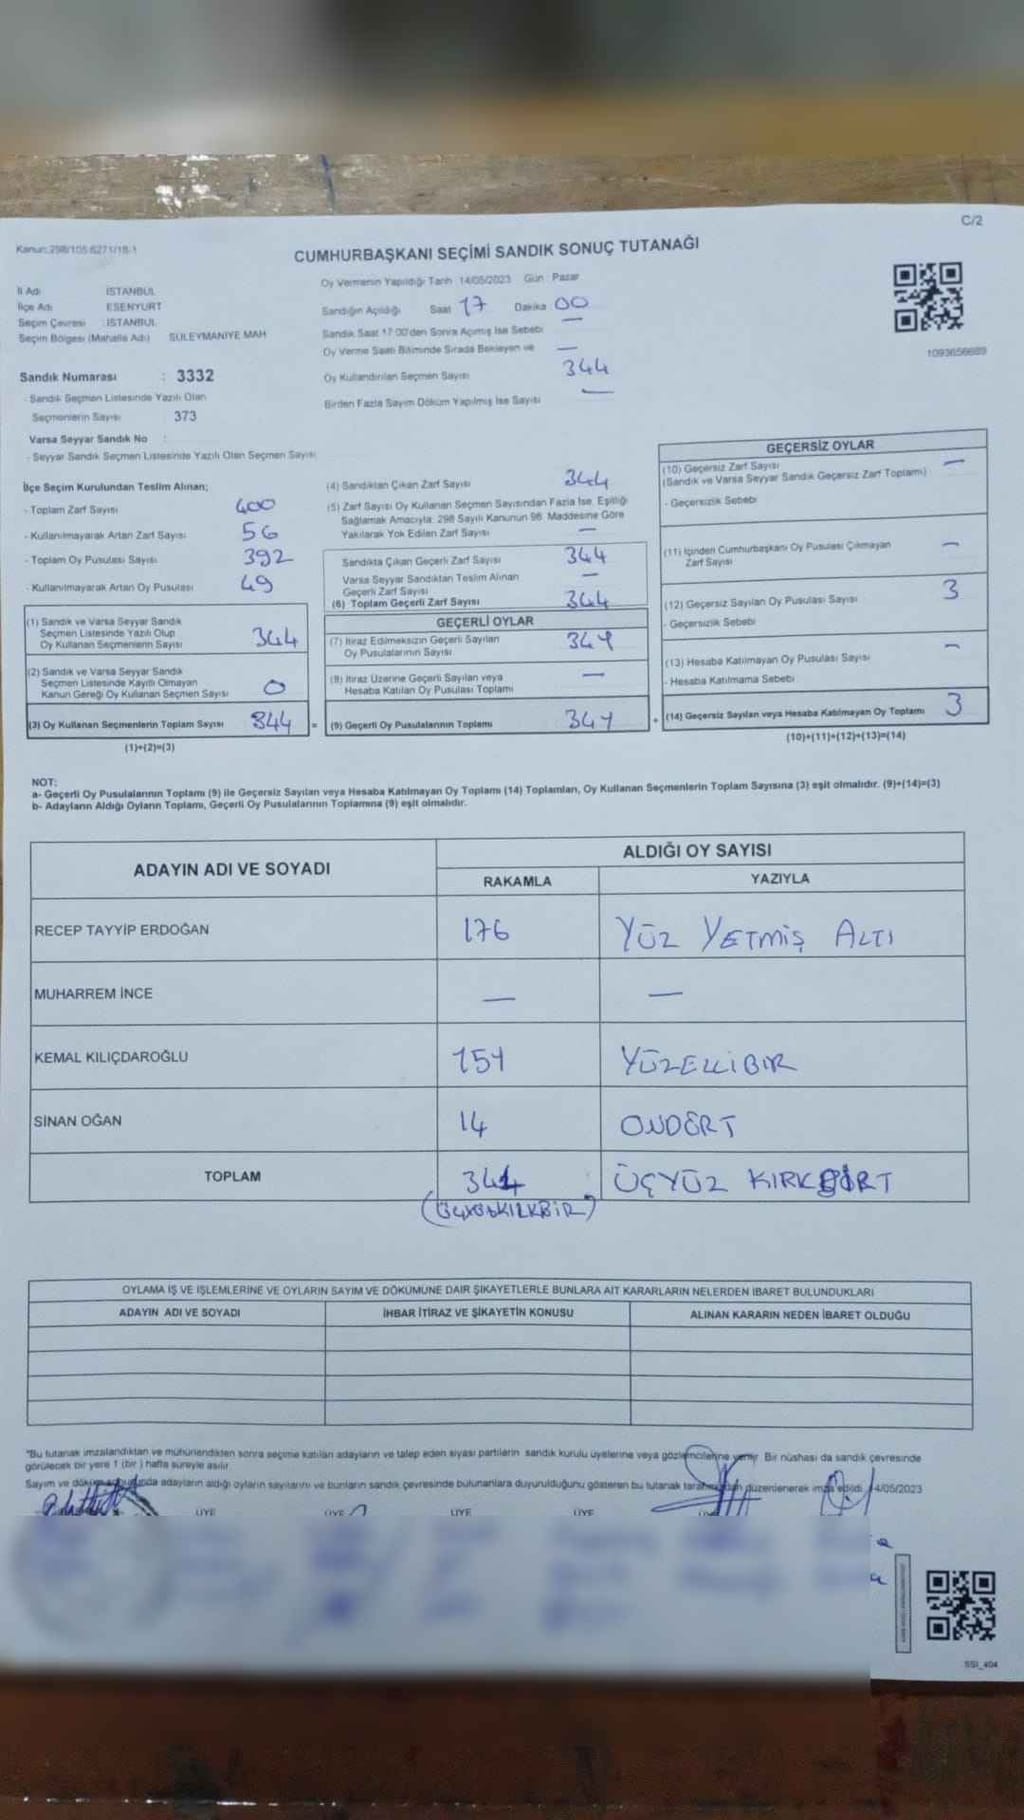 C/2
Kanun: 298/105 6271/18-1
CUMHURBAŞKANI SEÇİMİ SANDIK SONUÇ TUTANAĞI
İl Adı İSTANBUL
İlçe Adı ESENYURT
Seçim Çevresi : İSTANBUL
Seçim Bölgesi (Mahalle Adı) SÜLEYMANİYE MAH
Sandık Numarası : 3332
- Sandık Seçmen Listesinde Yazılı Olan
Seçmenlerin Sayısı 373
Varsa Seyyar Sandık No :
- Seyyar Sandık Seçmen Listesinde Yazılı Olan Seçmen Sayısı
Oy Vermenin Yapıldığı Tarih 14/05/2023 Gün : Pazar
Sandığın Açıldığı Saat 17 Dakika 00
Sandık Saat 17:00'den Sonra Açılmış İse Sebebi —
Oy Verme Saati Bitiminde Sırada Bekleyen ve —
Oy Kullandırılan Seçmen Sayısı 344
Birden Fazla Sayım Döküm Yapılmış İse Sayısı —
1093656689
İlçe Seçim Kurulundan Teslim Alınan;
- Toplam Zarf Sayısı 400
- Kullanılmayarak Artan Zarf Sayısı 56
- Toplam Oy Pusulası Sayısı 392
- Kullanılmayarak Artan Oy Pusulası 49
(1) Sandık ve Varsa Seyyar Sandık
Seçmen Listesinde Yazılı Olup
Oy Kullanan Seçmenlerin Sayısı 344
(2) Sandık ve Varsa Seyyar Sandık
Seçmen Listesinde Kayıtlı Olmayan
Kanun Gereği Oy Kullanan Seçmen Sayısı 0
(3) Oy Kullanan Seçmenlerin Toplam Sayısı 344 =
(1)+(2)=(3)
(4) Sandıktan Çıkan Zarf Sayısı 344
(5) Zarf Sayısı Oy Kullanan Seçmen Sayısından Fazla İse, Eşitliği
Sağlamak Amacıyla; 298 Sayılı Kanunun 98. Maddesine Göre
Yakılarak Yok Edilen Zarf Sayısı —
Sandıkta Çıkan Geçerli Zarf Sayısı 344
Varsa Seyyar Sandıktan Teslim Alınan
Geçerli Zarf Sayısı —
(6) Toplam Geçerli Zarf Sayısı 344
GEÇERLİ OYLAR
(7) İtiraz Edilmeksizin Geçerli Sayılan
Oy Pusulalarının Sayısı 341
(8) İtiraz Üzerine Geçerli Sayılan veya
Hesaba Katılan Oy Pusulası Toplamı —
(9) Geçerli Oy Pusulalarının Toplamı 341 +
GEÇERSİZ OYLAR
(10) Geçersiz Zarf Sayısı —
(Sandık ve Varsa Seyyar Sandık Geçersiz Zarf Toplamı)
- Geçersizlik Sebebi
(11) İçinden Cumhurbaşkanı Oy Pusulası Çıkmayan
Zarf Sayısı —
(12) Geçersiz Sayılan Oy Pusulası Sayısı 3
- Geçersizlik Sebebi
(13) Hesaba Katılmayan Oy Pusulası Sayısı —
- Hesaba Katılmama Sebebi
(14) Geçersiz Sayılan veya Hesaba Katılmayan Oy Toplamı 3
(10)+(11)+(12)+(13)=(14)
NOT:
a- Geçerli Oy Pusulalarının Toplamı (9) ile Geçersiz Sayılan veya Hesaba Katılmayan Oy Toplamı (14) Toplamları, Oy Kullanan Seçmenlerin Toplam Sayısına (3) eşit olmalıdır. (9)+(14)=(3)
b- Adayların Aldığı Oyların Toplamı, Geçerli Oy Pusulalarının Toplamına (9) eşit olmalıdır.
ADAYIN ADI VE SOYADI ALDIĞI OY SAYISI
RAKAMLA YAZIYLA
RECEP TAYYİP ERDOĞAN 176 YÜZ YETMİŞ ALTI
MUHARREM İNCE — —
KEMAL KILIÇDAROĞLU 151 YÜZELLİBİR
SİNAN OĞAN 14 ONDÖRT
TOPLAM 341 ÜÇYÜZ KIRK
(ÜÇYÜZKIRKBİR)
OYLAMA İŞ VE İŞLEMLERİNE VE OYLARIN SAYIM VE DÖKÜMÜNE DAİR ŞİKAYETLERLE BUNLARA AİT KARARLARIN NELERDEN İBARET BULUNDUKLARI
ADAYIN ADI VE SOYADI İHBAR İTİRAZ VE ŞİKAYETİN KONUSU ALINAN KARARIN NEDEN İBARET OLDUĞU
*Bu tutanak imzalandıktan ve mühürlendikten sonra seçime katılan adayların ve talep eden siyasi partilerin sandık kurulu üyelerine veya gözlemcilerine verilir. Bir nüshası da sandık çevresinde
görülecek bir yere 1 (bir) hafta süreyle asılır.
Sayım ve döküm sonucunda adayların aldığı oyların sayılarını ve bunların sandık çevresinde bulunanlara duyurulduğunu gösteren bu tutanak tarafımızdan düzenlenerek imza edildi. 14/05/2023
ÜYE ÜYE ÜYE ÜYE
SSI_404